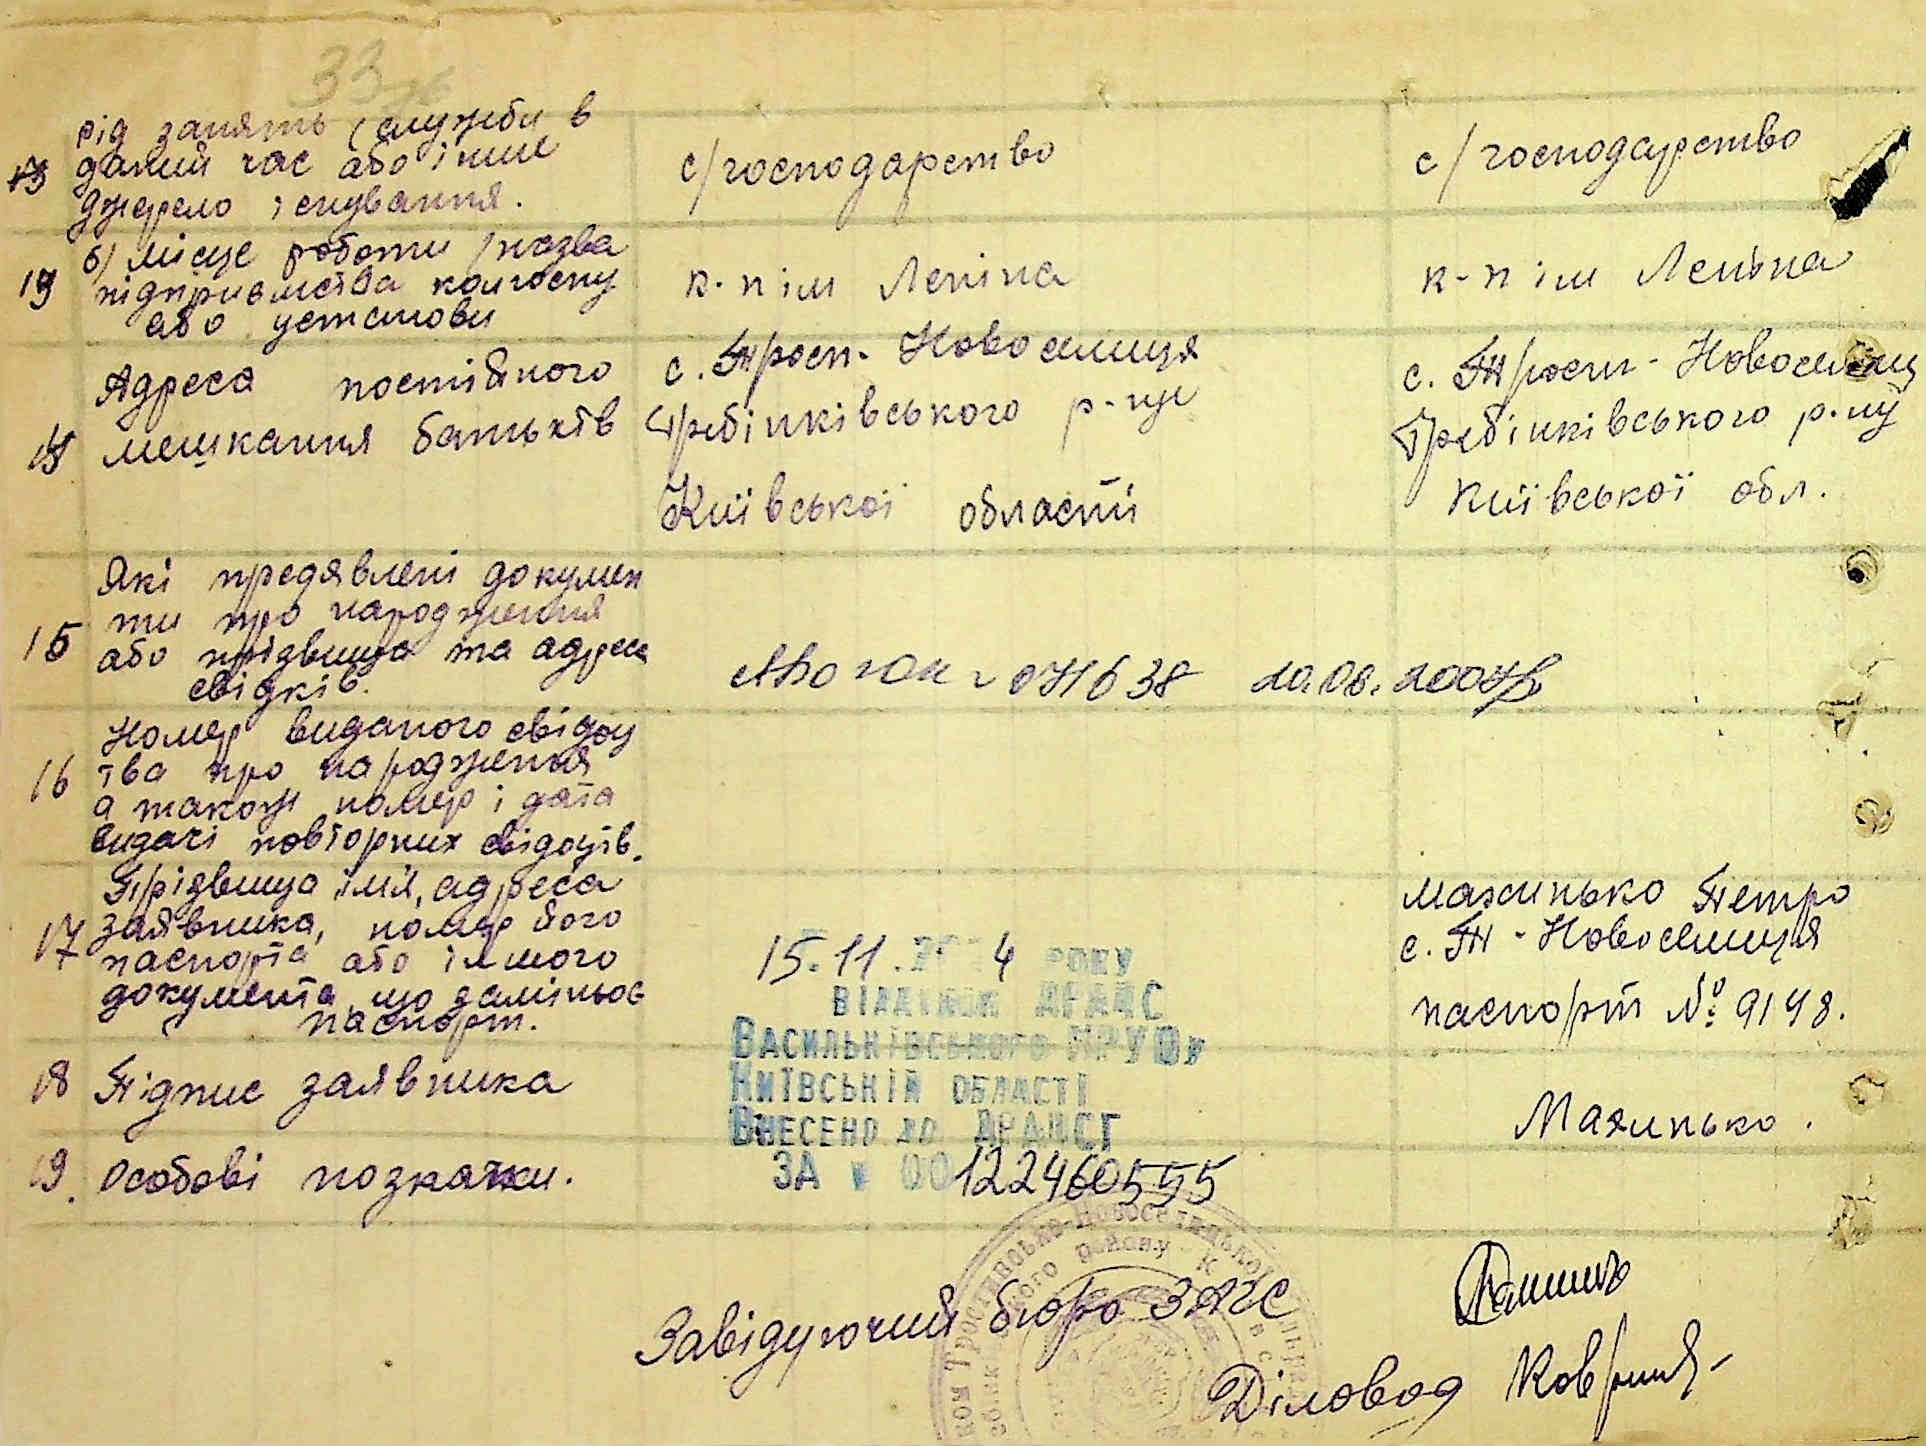 рід занять (служби в
13 даний час або інше
джерело існування.
с/господарство
с/господарство
б) місце роботи /назва
13 підприємства колгоспу
або установи
к-п ім Леніна
к-п ім Леніна
Адреса постійного
14 мешкання батьків
с. Трост-Новоселиця
Гребінківського р-ну
Київської області
с. Трост-Новоселиц
Гребінківського р-ну
Київської обл.
Які предявлені докумен
ти про народження
15 або прізвища та адреса
свідків.
071638 20.08.2004р
Номер виданого свідоц
16 тва про народження
а також номер і дата
видачі повторних свідоцтв.
Прізвища імя, адреса
17 заявника, номер його
паспорта або іншого
документа що заміньоє
паспорт.
15.11. 4 року
відділом ДРАЦС
Васильківського МРУЮ у
Київській області
Внесено до ДРАЦСГ
за № 001224460555
Маяинько Петро
с. Т-Новоселиця
паспорт № 9148.
18 Підпис заявника
Маяинько.
19. Особові позначки.
Завідуючий бюро ЗАГС
Діловод